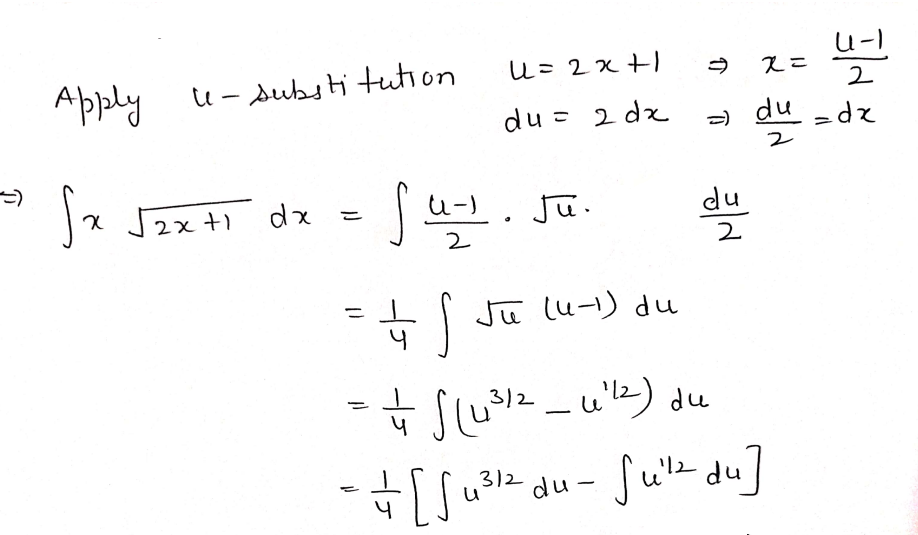 Apply u-substitution u = 2x+1 ⇒ x = (u-1)/2
du = 2 dx ⇒ du/2 = dx
⇒ ∫x √(2x+1) dx = ∫ (u-1)/2 . √u . du/2
= 1/4 ∫ √u (u-1) du
= 1/4 ∫(u^3/2 - u^1/2) du
= 1/4 [∫u^3/2 du - ∫u^1/2 du]